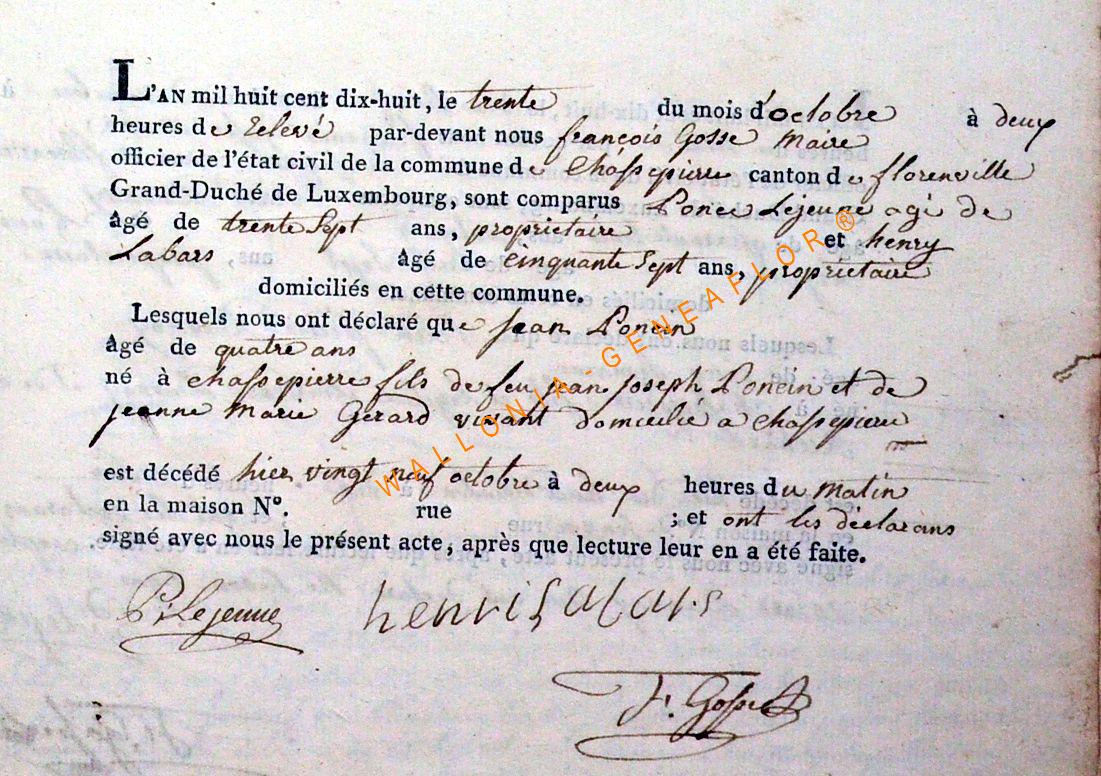 L'AN mil huit cent dix-huit, le trente du mois d'octobre à deux
heures de relevé par-devant nous françois Gosse Maire
officier de l'état civil de la commune de Chassepierre canton de florenville
Grand-Duché de Luxembourg, sont comparus Ponce Lejeune agé de
âgé de trente Sept ans, proprietaire et henry
Labars âgé de cinquante Sept ans, proprietaire
domiciliés en cette commune.
Lesquels nous ont déclaré que jean Poncin
âgé de quatre ans
né à chassepierre fils de feu jean joseph Poncin et de
jeanne Marie Gerard vivant domicilié a chassepierre
est décédé hier vingt neuf octobre à deux heures du Matin
en la maison N°. rue ; et ont les déclarans
signé avec nous le présent acte, après que lecture leur en a été faite.
P: Lejeune henri
F. Gosse
WALLONIA-GENEAPLOR®